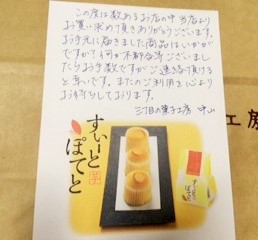 この度は数あるお店の中 当店より
お買い求め頂きありがとうございます。
お手元に届きました商品はいかがで
ですか？何か不都合等ございまし
たらお手数ですがご連絡頂けると
幸いです。またのご利用を心より
お待ちしております。
三丁目の菓子工房
すいーと
ぽてと
工房